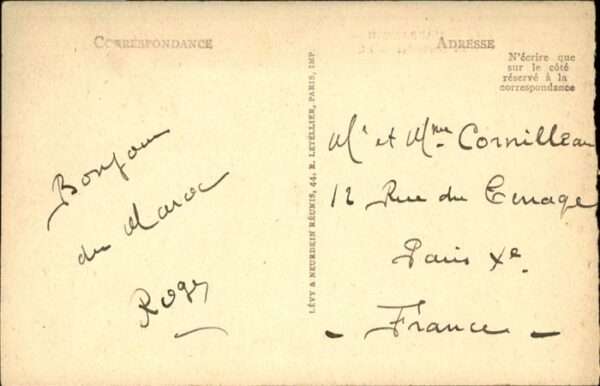 CORRESPONDANCE
Bonjour
du Maroc
Roger
LÉVY & NEURDEIN RÉUNIS, 44, R. LETELLIER, PARIS, IMP.
ADRESSE
N'écrire que
sur le côté
réservé à la
correspondance
Mr et Mme Cornilleau
12 Rue du
Paris Xe
- France -